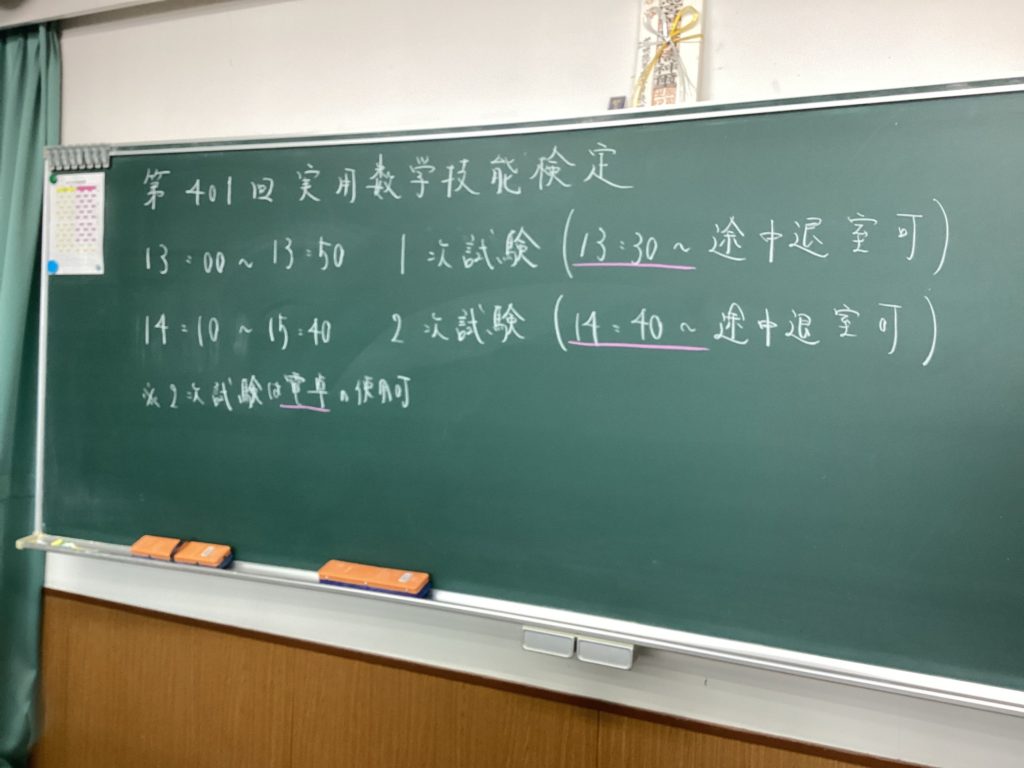 第401回 実用数学技能検定
13:00～13:50 1次試験 (13:30～途中退室可)
14:10～15:40 2次試験 (14:40～途中退室可)
※2次試験は電卓の使用可